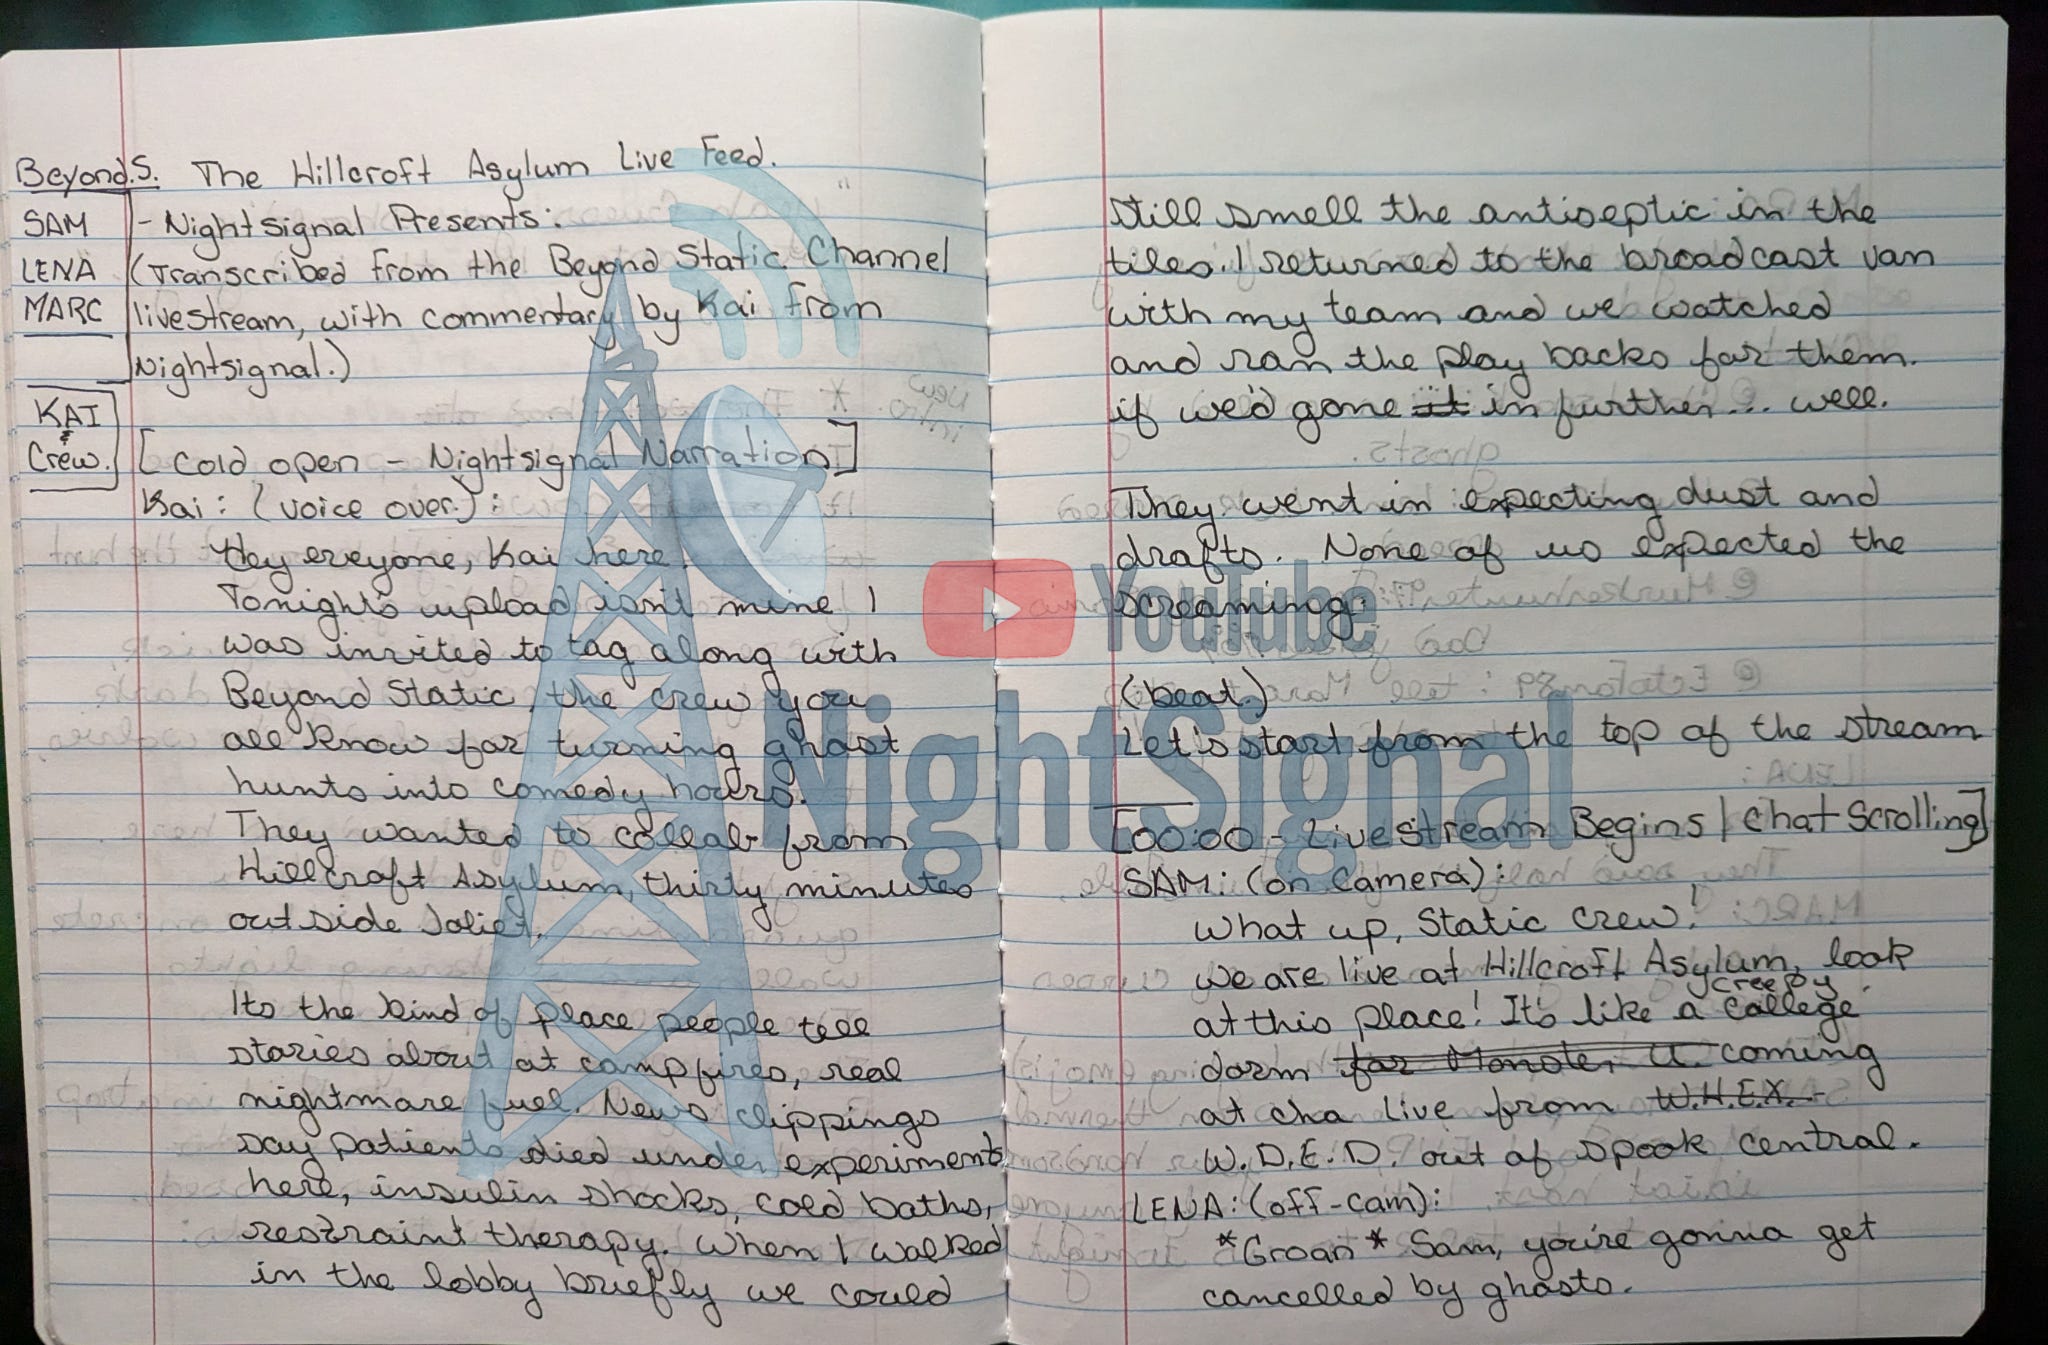 Beyond.S. The Hillcroft Asylum Live Feed.
SAM
LENA
MARC
- Nightsignal Presents:
(Transcribed from the Beyond Static Channel
livestream, with commentary by Kai from
Nightsignal.)
KAI
&
Crew.
[Cold open - Nightsignal Narration]
Kai: (voice over):
Hey everyone, Kai here.
Tonight's upload isn't mine I
was invited to tag along with
Beyond Static, the crew you
all know for turning ghost
hunts into comedy hours.
They wanted to collab from
Hillcroft Asylum, thirty minutes
outside Joliet.
Its the kind of place people tell
stories about at campfires, real
nightmare fuel. News clippings
say patients died under experiments
here, insulin shocks, cold baths,
restraint therapy. When I walked
in the lobby briefly we could
still smell the antiseptic in the
tiles. I returned to the broadcast van
with my team and we watched
and ran the play backs for them.
if we'd gone it in further... well.
They went in expecting dust and
drafts. None of us expected the
screaming.
(beat.)
Let's start from the top of the stream
[00:00 - Livestream Begins | Chat Scrolling]
SAM: (on camera):
What up, Static crew!
we are live at Hillcroft Asylum, look
at this place! It's like a creepy college
dorm for Monster U. coming
at cha live from W.H.E.X.
W.D.E.D. out of spook central.
LENA: (off-cam):
*Groan* Sam, you're gonna get
cancelled by ghosts.
YouTube
NightSignal